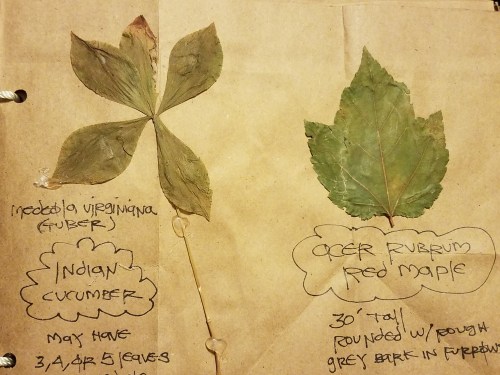 medeola virginiana
(TUBER)
INDIAN
CUCUMBER
MAY HAVE
3, 4, OR 5 leaves
ACER RUBRUM
Red maple
30' Tall
ROUNDED w/ ROUGH
gREY BARK IN FURROWS